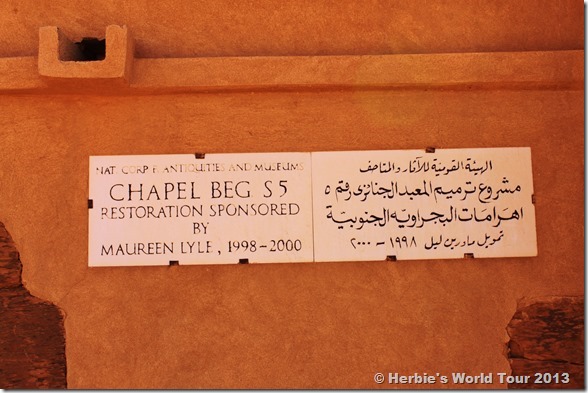 NAT. CORP F. ANTIQUITIES AND MUSEUMS
CHAPEL BEG S5
RESTORATION SPONSORED
BY
MAUREEN LYLE, 1998-2000
الهيئة القومية للآثار والمتاحف
مشروع ترميم المعبد الجنائزى رقم ٥
اهرامات البجراوية الجنوبية
تمويل مادرين ليل ١٩٩٨ - ٢٠٠٠
© Herbie's World Tour 2013